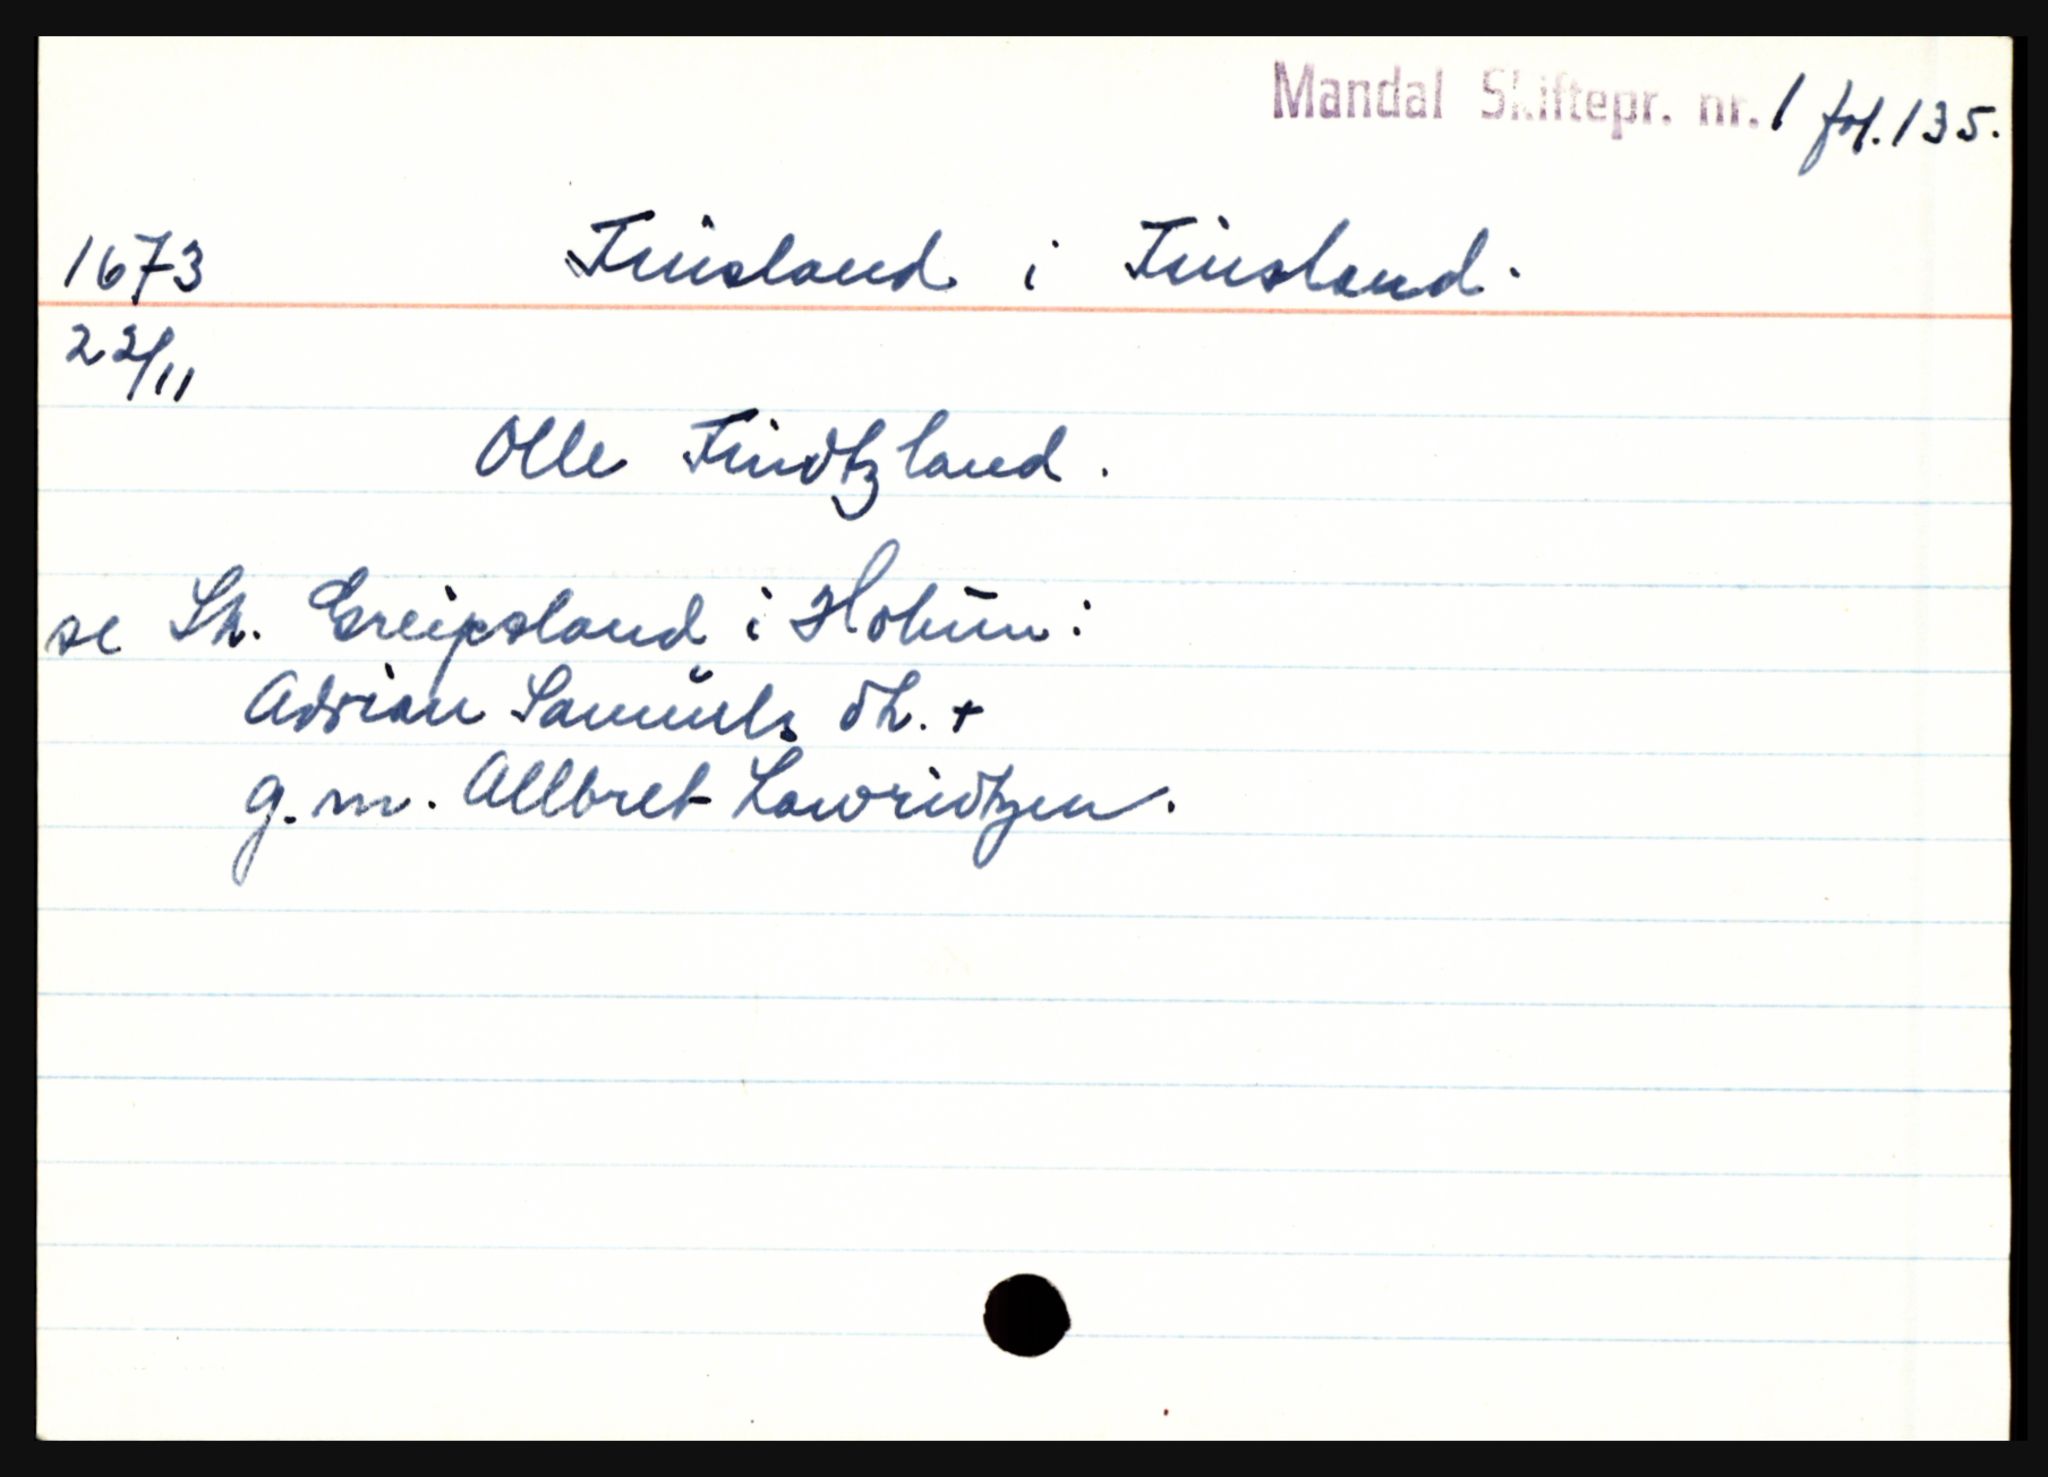 Mandal Skiftepr. nr. 1 fol. 135.
1673 Finsland i Finsland.
22/11
Olle Findtzland.
se Sk. Greipsland i Holum:
Adrian Samuels dtr. +
g. m. Allbret Lawridtzen.